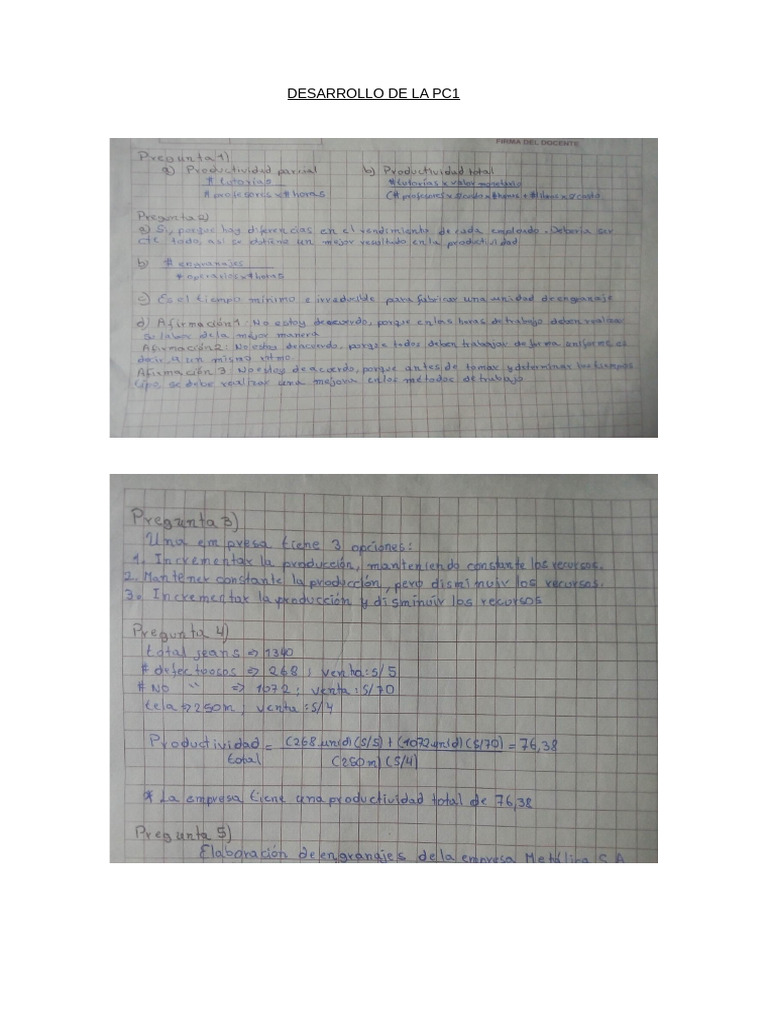 DESARROLLO DE LA PC1
FIRMA DEL DOCENTE
Pregunta 1)
a) Productividad parcial b) Productividad total
# tutorías #tutorías x valor monetario
# profesores x # horas (# profesores x #costo x #horas + # x #costo
Pregunta 2)
a) Si, porque hay diferencias en el rendimiento de cada empleado. Debería ser
de todo, así se obtiene un mejor resultado en la productividad
b) # engranajes
# operarios x # horas
c) Es el tiempo mínimo e irreducible para fabricar una unidad de engranaje
d) Afirmación 1: No estoy deacuerdo, porque en las horas de trabajo deben realizar
su labor de la mejor manera
Afirmación 2: No estoy deacuerdo, porque todos deben trabajar de forma uniforme, es
decir, a un mismo ritmo
Afirmación 3: No estoy de acuerdo, porque antes de tomar y determinar los tiempos
tipo, se debe realizar una mejora en los metodos de trabajo
Pregunta 3)
Una empresa tiene 3 opciones:
1. Incrementar la producción, manteniendo constante los recursos.
2. Mantener constante la producción, pero disminuir los recursos.
3. Incrementar la producción y disminuir los recursos
Pregunta 4)
total jeans => 1340
# defectuosos => 268 ; venta: s/5
# No " => 1072 ; venta: s/70
tela => 250m ; venta: s/4
Productividad = (268 unid)(s/5) + (1072 unid)(s/70) = 76,38
total (250m)(s/4)
* La empresa tiene una productividad total de 76,38
Pregunta 5)
Elaboración de engranajes de la empresa Metálica S.A